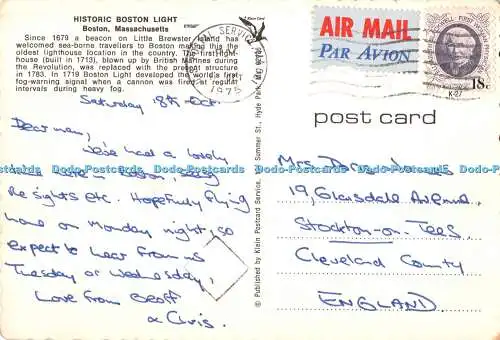 HISTORIC BOSTON LIGHT
Boston, Massachusetts
Since 1679 a beacon on Little Brewster Island has
welcomed sea-borne travellers to Boston making this the
oldest lighthouse location in the country. The first light-
house (built in 1713), blown up by British Marines during
the Revolution, was replaced with the present structure
in 1783. In 1719 Boston Light developed the world's first
fog-warning signal when a cannon was fired at regular
intervals during heavy fog.
Saturday 18th Oct.
Dear mum,
We've had a lovely
in Boston,
sights etc. Hopefully flying
home on Monday night, so
expect to hear from us
Tuesday or Wednesday,
Love from Geoff
& Chris.
© Published by Klein Postcard Service, Summer St., Hyde Park, Mass.
SERVICE
1975
AIR MAIL
PAR AVION
18c
post card
Mrs
19, Glaisdale Avenue,
Stockton-on-Tees
Cleveland County
ENGLAND
Dodo-Postcards Dodo-Postcards Dodo-Postcards Dodo-Postcards Dodo-Postcards Dodo-Postcards